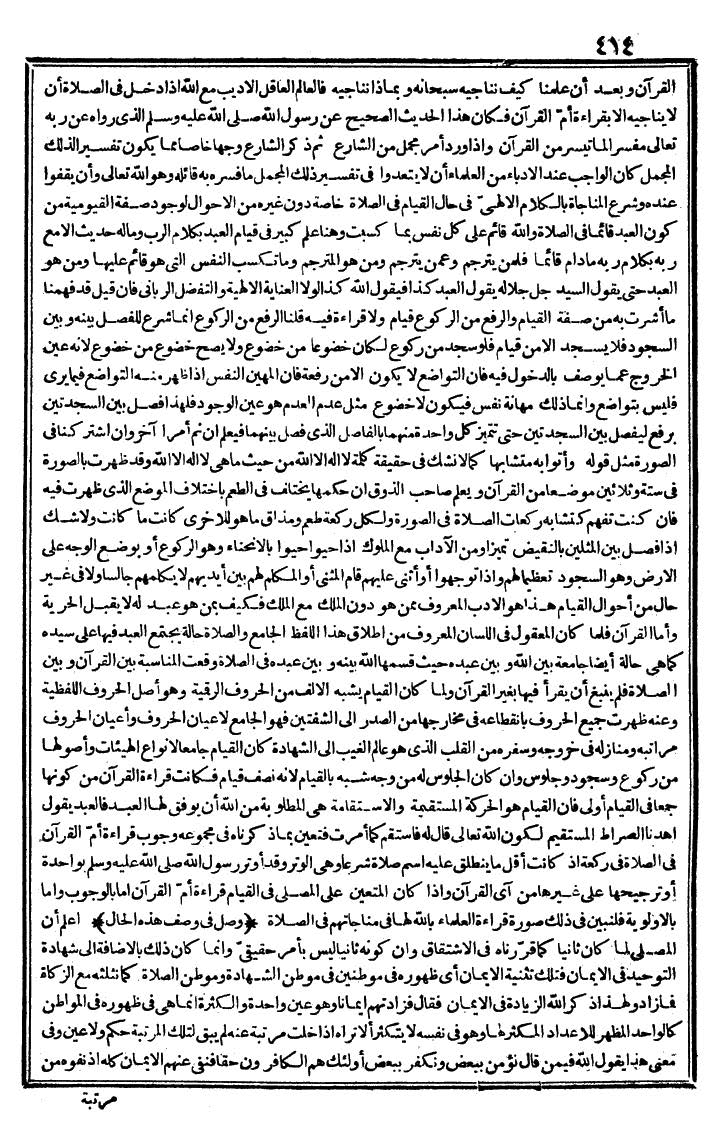 ٤١٤
القرآن وبعد أن علمنا كيف نناجيه سبحانه وبماذا نناجيه فالعالم العاقل الاديب مع الله اذا دخل فى الصلاة أن
لا يناجيه الا بقراءة أمّ القرآن فكان هذا الحديث الصحيح عن رسول الله صلى الله عليه وسلم الذى رواه عن ربه
تعالى مفسر الما تيسر من القرآن واذا ورد أمر مجمل من الشارع ثم ذكر الشارع وجها خاصا مما يكون تفسير الذلك
المجمل كان الواجب عند الادباء من العلماء أن لا يتعدوا فى تفسير ذلك المجمل ما فسره به قائله وهو الله تعالى وأن يقفوا
عنده وشرع المناجاة بالكلام الالهىّ فى حال القيام فى الصلاة خاصة دون غيره من الاحوال لوجود صفة القيومية من
كون العبد قائما فى الصلاة والله قائم على كل نفس بما كسبت وهنا علم كبير فى قيام العبد بكلام الرب وماله حديث الامع
ربه بكلام ربه مادام قائما فلمن يترجم وعمن يترجم ومن هو المترجم وما تكسب النفس التى هو قائم عليها ومن هو
العبد حتى يقول السيد جل جلاله يقول العبد كذا فيقول الله كذا لولا العناية الالهية والتفضل الربانى فان قيل قد فهمنا
ما أشرت به من صفة القيام والرفع من الركوع قيام ولا قراءة فيه قلنا الرفع من الركوع انما شرع للفصل بينه وبين
السجود فلا يسجد الا من قيام فلو سجد من ركوع لكان خضوعا من خضوع ولا يصح خضوع من خضوع لانه عين
الخروج عما يوصف بالدخول فيه فان التواضع لا يكون الا من رفعة فان المهين النفس اذا ظهر منه التواضع فيما يرى
فليس بتواضع وانما ذلك مهانة نفس فيكون لا خضوع مثل عدم العدم هو عين الوجود فلهذا فصل بين السجدتين
برفع ليفصل بين السجدتين حتى تتميز كل واحدة منهما بالفاصل الذى فصل بينهما فيعلم ان ثم أمرا آخر وان اشتركا فى
الصورة مثل قوله وأتوا به متشابها كما لا نشك فى حقيقة كلمة لا اله الا الله من حيث ما هى لا اله الا الله وقد ظهرت بالصورة
فى ستة وثلاثين موضعا من القرآن ويعلم صاحب الذوق ان حكمها يختلف فى الطعم باختلاف الموضع الذى ظهرت فيه
فان كنت تفهم كتشابه ركعات الصلاة فى الصورة ولكل ركعة طعم ومذاق ماهو للاخرى كانت ما كانت ولا شك
اذا فصل بين المثلين بالنقيض تميزا ومن الآداب مع الملوك اذا حيوا حيوا بالانحناء وهو الركوع أو بوضع الوجه على
الارض وهو السجود تعظيما لهم واذا توجهوا أو أثنى عليهم قام المثنى أو المكلم لهم بين أيديهم لا يكلمهم جالسا ولا فى غير
حال من أحوال القيام هذا هو الادب المعروف ممن هو دون الملك مع الملك فكيف بمن هو عبد له لا يقبل الحرية
وأما القرآن فلما كان المعقول فى اللسان المعروف من اطلاق هذا اللفظ الجامع والصلاة حالة يجتمع العبد فيها على سيده
كما هى حالة أيضا جامعة بين الله وبين عبده حيث قسمها الله بينه وبين عبده فى الصلاة وقعت المناسبة بين القرآن وبين
الصلاة فلم ينبغ أن يقرأ فيها بغير القرآن ولما كان القيام يشبه الالف من الحروف الرقية وهو أصل الحروف اللفظية
وعنه ظهرت جميع الحروف بانقطاعه فى مخارجها من الصدر الى الشفتين فهو الجامع لاعيان الحروف وأعيان الحروف
مراتبه ومنازله فى خروجه وسفره من القلب الذى هو عالم الغيب الى الشهادة كان القيام جامعا لانواع الهيئات وأصولها
من ركوع وسجود وجلوس وان كان الجلوس له من وجه شبه بالقيام لانه نصف قيام فكانت قراءة القرآن من كونها
جمعا فى القيام أولى فان القيام هو الحركة المستقيمة والاستقامة هى المطلوبة من الله أن يوفق لها العبد فالعبد يقول
اهدنا الصراط المستقيم لكون الله تعالى قال له فاستقم كما أمرت فتعين بماذكرناه فى مجموعه وجوب قراءة أمّ القرآن
فى الصلاة فى ركعة اذ كانت أقل ما ينطلق عليه اسم صلاة شرعا وهى الوتر وقد أوتر رسول الله صلى الله عليه وسلم بواحدة
أو ترجيحها على غيرها من آى القرآن واذا كان المتعين على المصلى فى القيام قراءة أمّ القرآن اما بالوجوب واما
بالاولوية فلنبين فى ذلك صورة قراءة العلماء بالله لها فى مناجاتهم فى الصلاة ﴿وصل فى وصف هذه الحال﴾ اعلم أن
المصلى لما كان ثانيا كما قررناه فى الاشتقاق وان كونه ثانيا ليس بأمر حقيقىّ وانما كان ذلك بالاضافة الى شهادة
التوحيد فى الايمان فتلك تثنية الايمان أى ظهوره فى موطنين فى موطن الشهادة وموطن الصلاة كما نثلثه مع الزكاة
فما زاد ولهذا ذكر الله الزيادة فى الايمان فقال فزادتهم ايمانا وهو عين واحدة والكثرة انما هى فى ظهوره فى المواطن
كالواحد المظهر للاعداد المكثر لها وهو فى نفسه لا يتكثر ألا تراه اذا خلت مرتبة عنه لم يبق لتلك المرتبة حكم ولا عين وفى
معنى هذا يقول الله فيمن قال نؤمن ببعض ونكفر ببعض أولئك هم الكافرون حقا فنفى عنهم الايمان كله اذ نفوه من
مرتبة